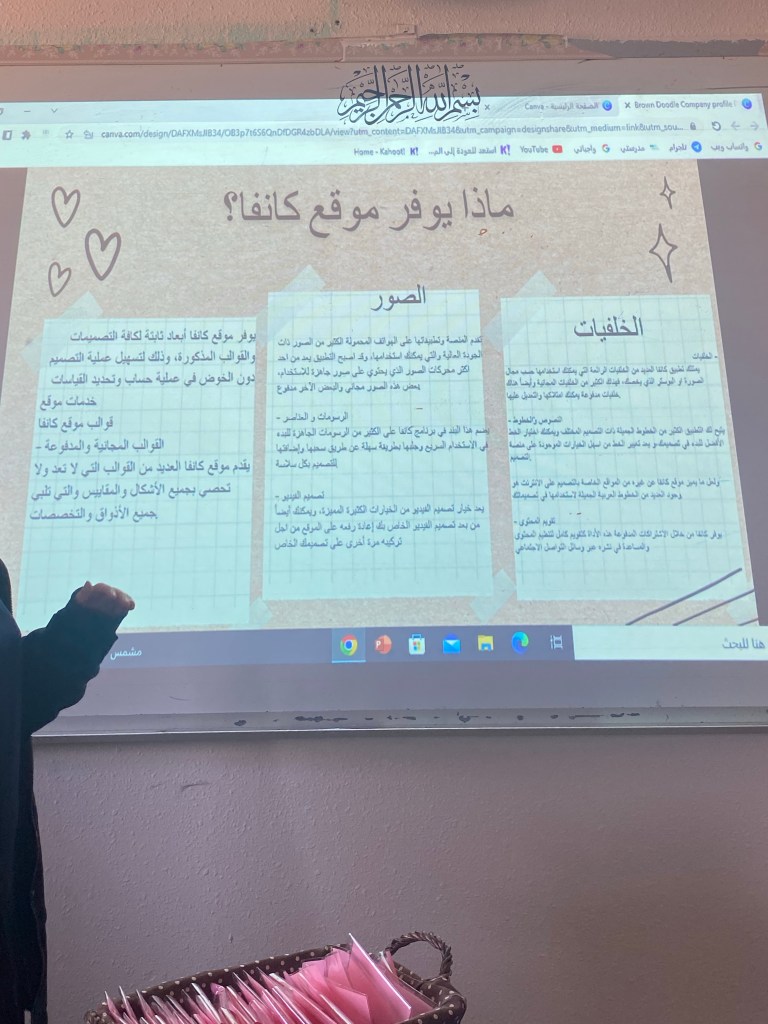 بسم الله الرحمن الرحيم
Brown Doodle Company profile
الصفحة الرئيسية - Canva
canva.com/design/DAFXMsJIB34/OB3p7t6S6QnDfDGR4zbDLA/view?utm_content=DAFXMsJIB34&utm_campaign=designshare&utm_medium=link&utm_sou...
واتساب ويب
تلجرام
مدرستي
واجباتي
YouTube
استعد للعودة إلى الم...
Home - Kahoot!
ماذا يوفر موقع كانفا؟
الخلفيات
- الخلفيات
يمتلك تطبيق كانفا العديد من الخلفيات الرائعة التي يمكنك استخدامها حسب مجال
الصورة أو البوستر الذي يخصك، فهناك الكثير من الخلفيات المجانية وأيضاً هناك
خلفيات مدفوعة يمكنك امتلاكها والتعديل عليها.
النصوص والخطوط -
يتيح لك التطبيق الكثير من الخطوط الجميلة ذات التصميم ويمكنك اختيار الخط
الأفضل للبدء في تصميمك و يعد تغيير الخط من اسهل الخيارات الموجودة على منصة
التصميم.
ولعل ما يميز موقع كانفا عن غيره من المواقع الخاصة بالتصميم على الإنترنت هو
وجود العديد من الخطوط العربية الجميلة لاستخدامها في تصميماتك
تقويم المحتوى -
يوفر كانفا من خلال الاشتراكات المدفوعة هذه الأداة كتقويم كامل لتنظيم المحتوى
والمساعدة في نشره عبر وسائل التواصل الاجتماعي
الصور
تقدم المنصة وتطبيقاتها على الهواتف المحمولة الكثير من الصور ذات
الجودة العالية والتي يمكنك استخدامها، وقد اصبح التطبيق يعد من احد
اكثر محركات الصور الذي يحتوي على صور جاهزة للاستخدام،
بعض هذه الصور مجاني والبعض الآخر مدفوع
الرسومات و العناصر -
يضم هذا البند في برنامج كانفا على الكثير من الرسومات الجاهزة للبدء
في الاستخدام السريع وجلبها بطريقة سهلة عن طريق سحبها وإضافتها
للتصميم بكل سلاسة
تصميم الفيديو -
يعد خيار تصميم الفيديو من الخيارات الكثيرة المميزة، ويمكنك أيضاً
من بعد تصميم الفيديو الخاص بك إعادة رفعه على الموقع من اجل
تركيبه مرة أخرى على تصميمك الخاص
يوفر موقع كانفا أبعاد ثابتة لكافة التصميمات
والقوالب المذكورة، وذلك لتسهيل عملية التصميم
دون الخوض في عملية حساب وتحديد القياسات
خدمات موقع
قوالب موقع كانفا
القوالب المجانية والمدفوعة -
يقدم موقع كانفا العديد من القوالب التي لا تعد ولا
تحصي بجميع الأشكال والمقاييس والتي تلبي
جميع الأذواق والتخصصات
هنا للبحث
مشمس